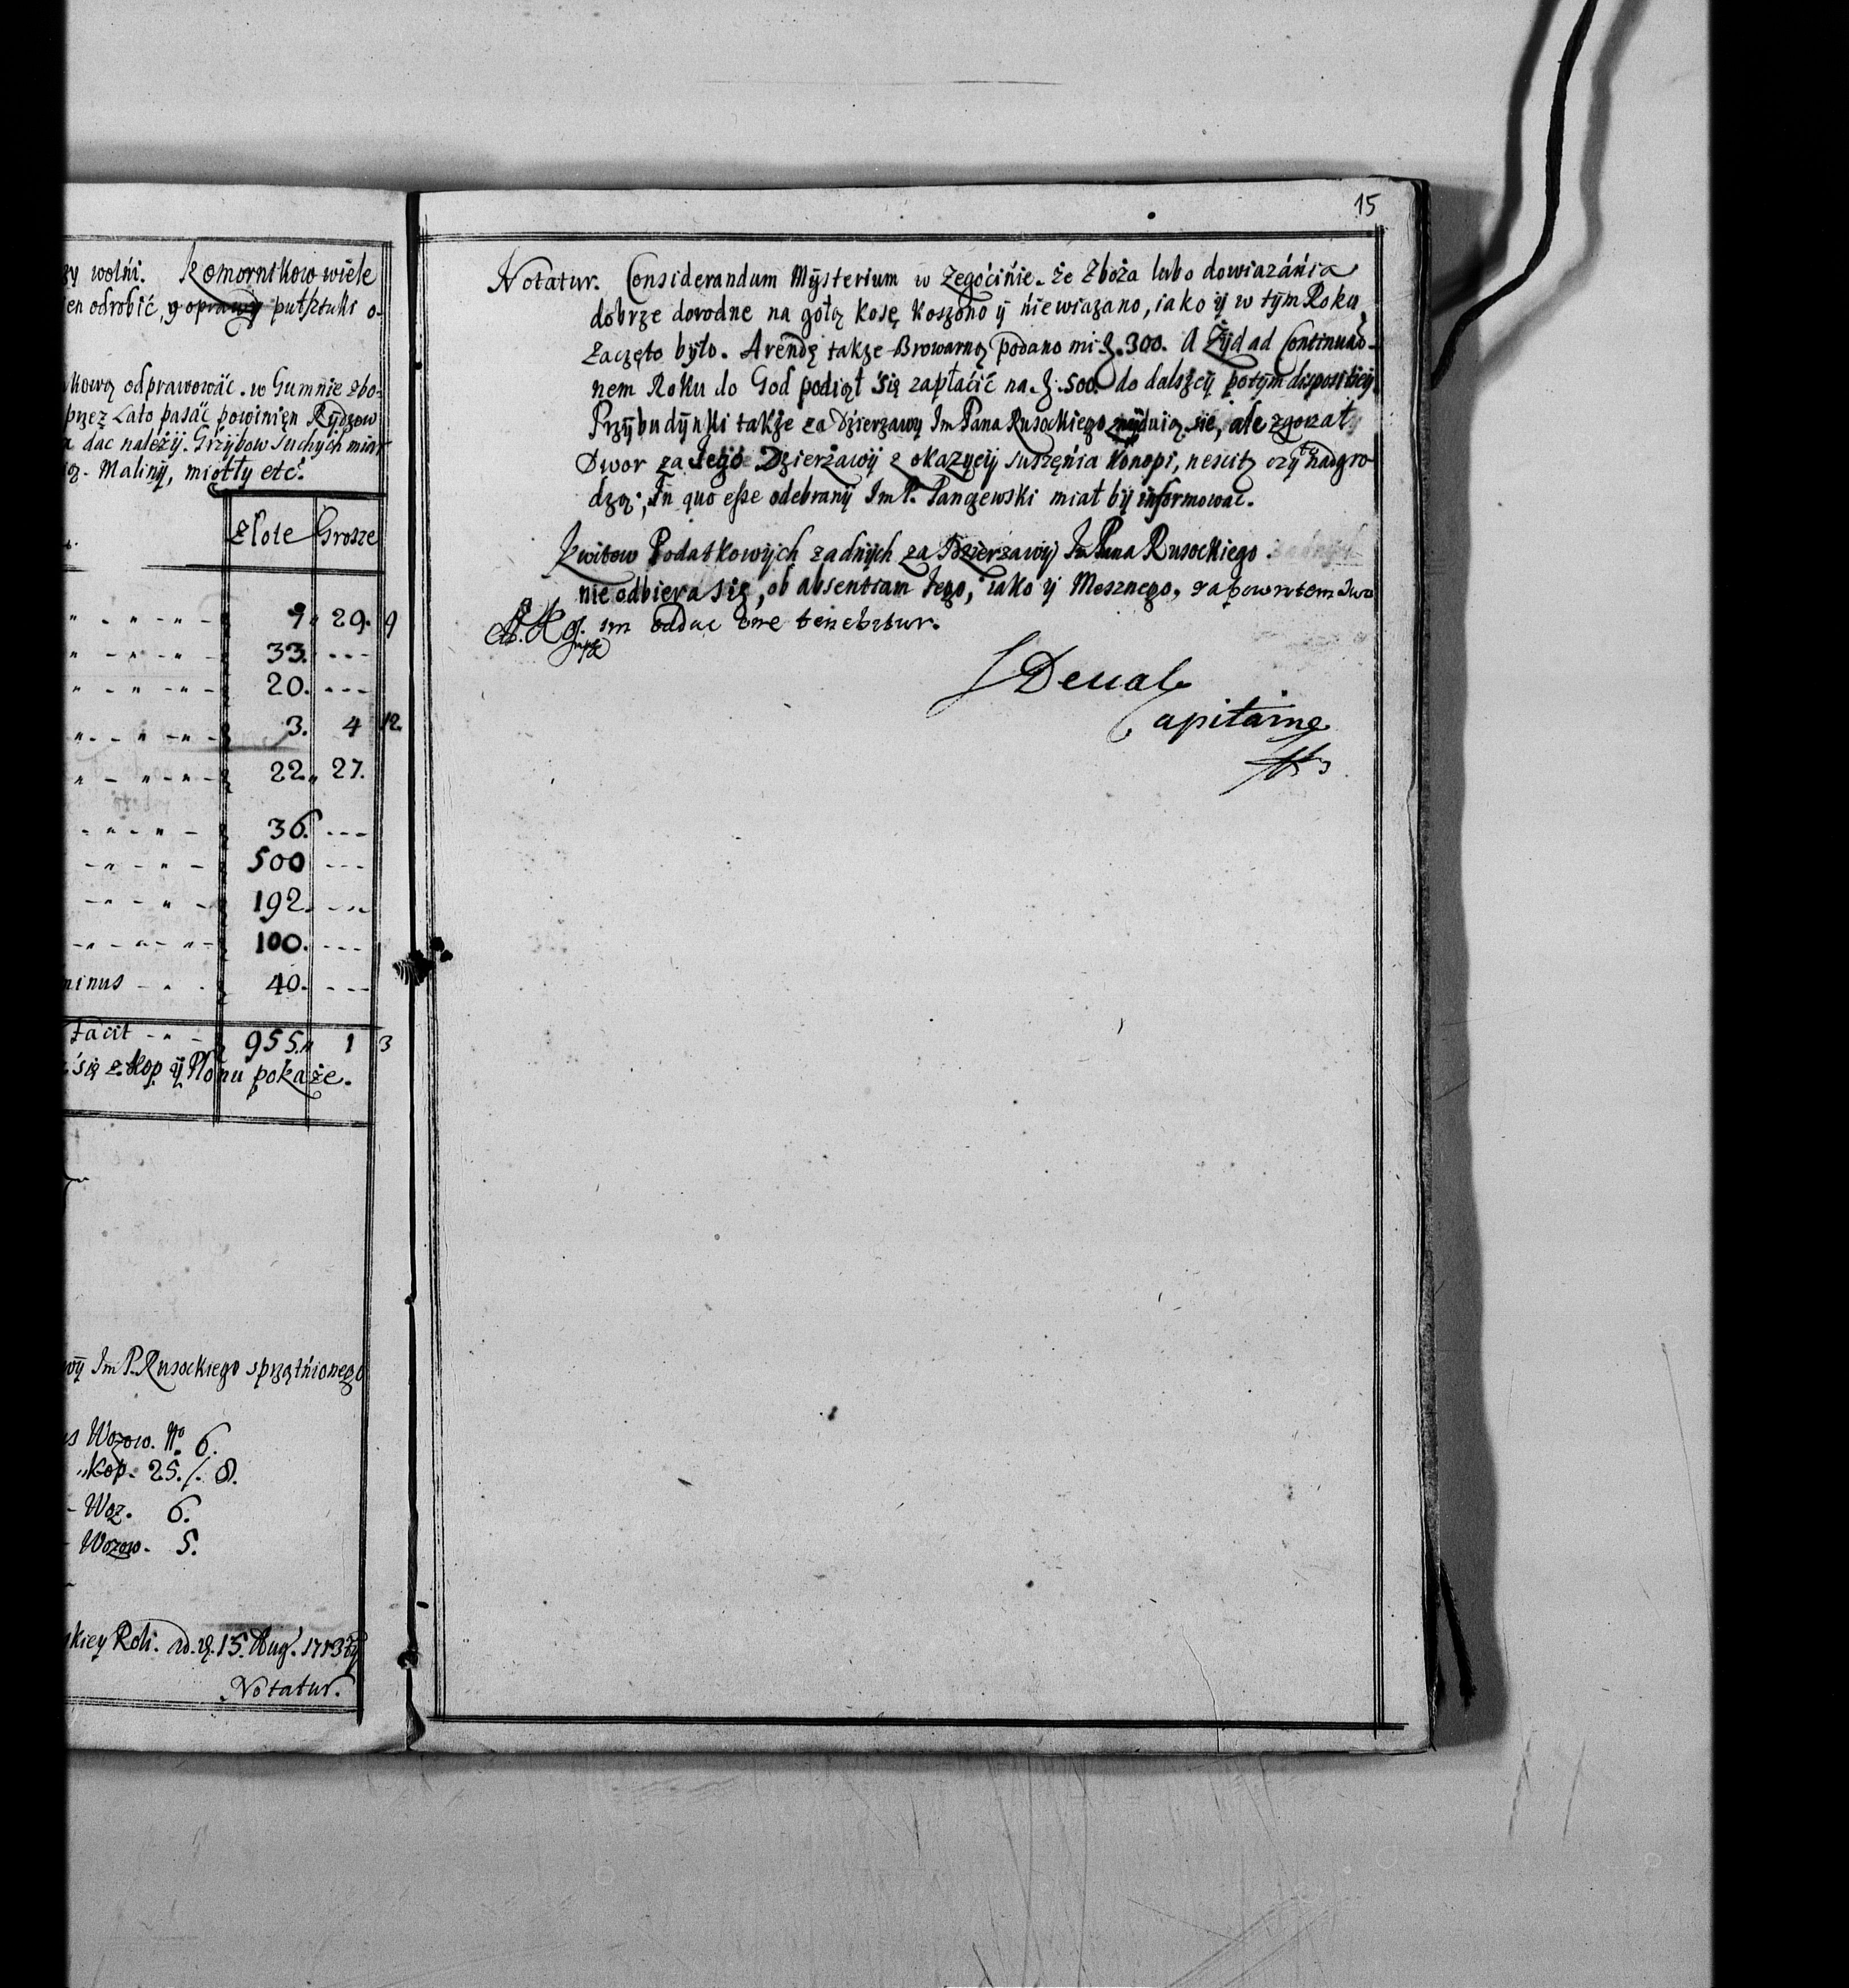 wolńi. Komornikow wiele
odrobić, y oprawy putsztuki o-
odprawować. w Gumnie zbo-
przez Lato pasać powinien Rydzow
dac należy. Grzybow suchych miar
Maliny, miotły etc.
Złote Grosze
9. 29. 9
33. ---
20. ---
3. 4 12.
22. 27.
36. ---
500 ---
192. ---
100. ---
minus 40. ---
facit 955. 1 3
się z Kop ÿ Plonu pokaże.
Im P. Rusockiego sprzątnionego
Wozow. No 6.
Kop. 25./. 8.
- Woz. 6.
- Wozow. 5.
Roli. 15. Aug. 1713
Notatur.
15
Notatur. Considerandum Mÿsterium w Zegoćińie. że Zboża lubo dowiązáńia
dobrze dorodne na gołą kosę koszono ÿ ńiewiązano, iako ÿ w tÿm Roku
zaczęto było. Arendę także Browarną podano mi 300. A Żÿd ad Continuao-
nem Roku do God podiął się zapłaćić na 500. do dalszeÿ potÿm disposicÿi.
Przÿbudÿnki także za Dzierzawÿ Im Pana Rusockiego się, ale zgorzał
Dwor za Jego Dzierżawÿ z okazÿeÿ suszęńia Konopi, nescitz czÿ to nadgro
dzą; In quo esse odebranÿ Im P. Pangewski miał bÿ informować.
Kwitow Podatkowÿch żadnÿch za Dzierzawÿ Im Pana Rusockiego
nie odbiera się, ob absentiam Jego, iako ÿ Mesznego, za powrotem
im oddac one tenebitur.
Deual
Capitaine